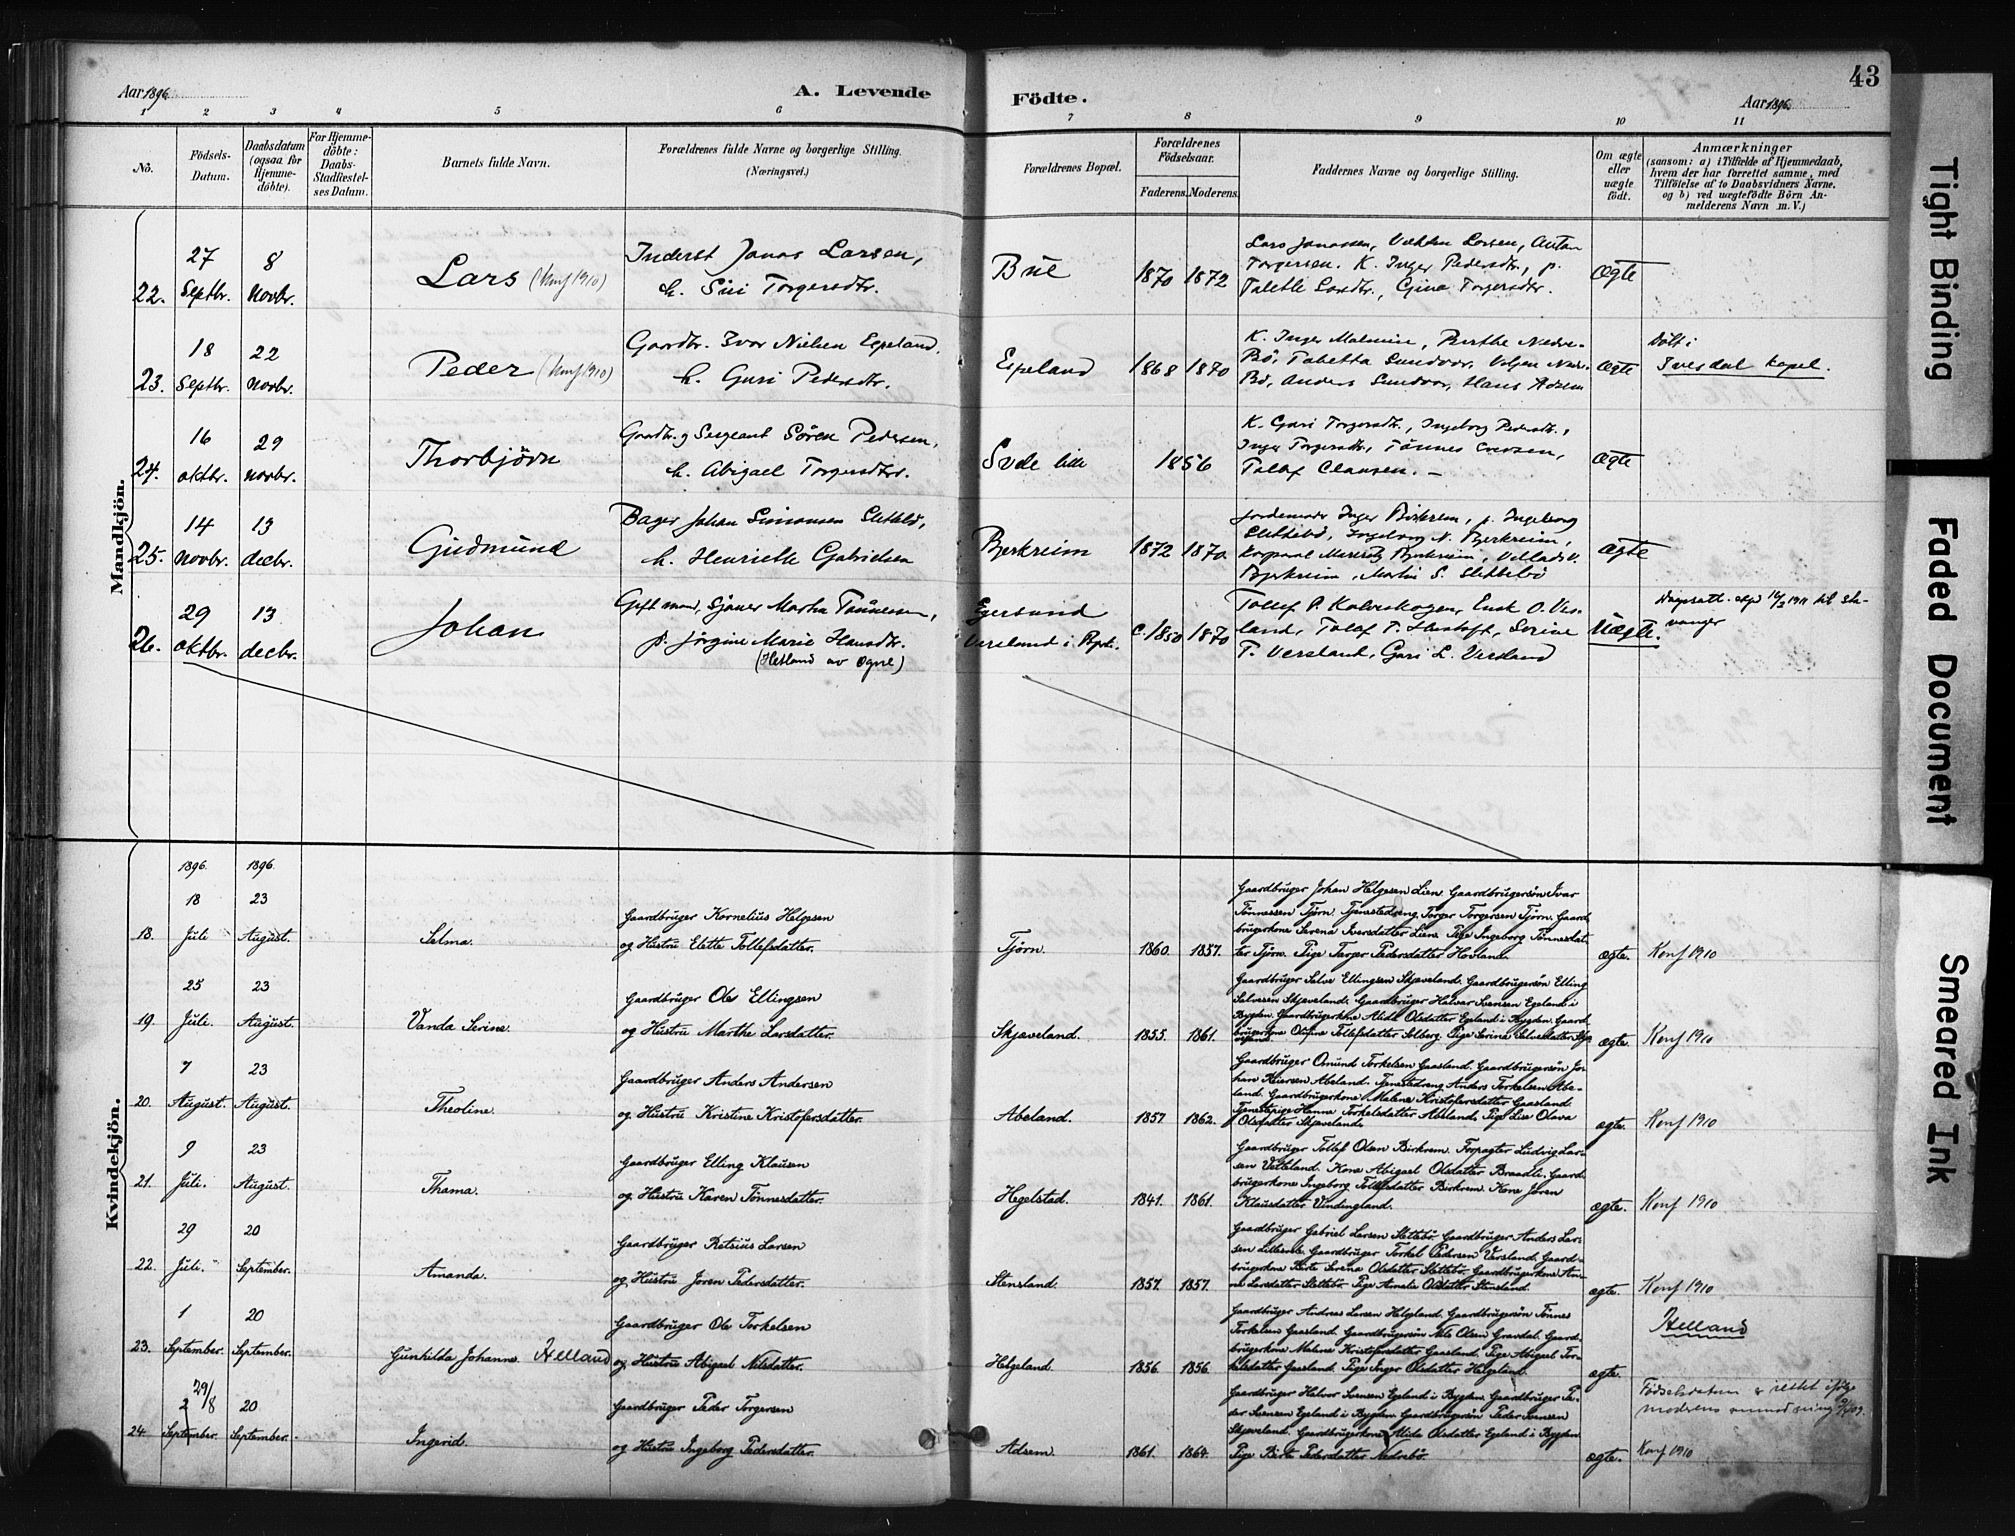 Aar 1896.
A. Levende
Födte.
Aar 1896.
43
1 2 3 4 5 6 7 8 9 10 11
No.
Födsels-Datum.
Daabsdatum (ogsaa for Hjemme-döbte).
For Hjemme-döbte: Daabs-Stadfæstel-ses Datum.
Barnets fulde Navn.
Forældrenes fulde Navne og borgerlige Stilling. (Næringsvei.)
Forældrenes Bopæl.
Forældrenes Födselsaar.
Faderens. Moderens.
Faddernes Navne og borgerlige Stilling.
Om ægte eller uægte födt.
Anmærkninger
(saasom: a) i Tilfælde af Hjemmedaab,
hvem der har forrettet samme, med
Tilföielse af to Daabsvidners Navne.
og b) ved uægtefödte Börn An-
melderens Navn m. V.)
Mandkjön.
22. 27 Septbr. 8 Novbr. Lars (Konf 1910)
Inderst Jonas Larsen,
h. Siri Torgersdtr.
Bue 1870 1872
Lars Jonassen, Larsen, Anton
Torgersen. K. Inger Pedersdtr., p.
Larsdtr., Gina Torgersdtr.
Ægte
23. 18 Septbr. 22 Novbr. Peder (Konf 1910)
Gaardbr. Ivar Nielsen Espeland,
h. Guri Pedersdtr.
Espeland 1868 1870
K. Inger Malmin, Berthe Nedre-
Bö, Tabetta Sundvor, Nedre
Bö, Anders Sundvor, Hans Adsem
Ægte
Döbt i
Ivesdal kapel.
24. 16 oktbr. 29 novbr. Thorbjörn
Gaardbr. og Sergeant Sören Pedersen,
h. Abigael Torgersdtr.
Svele lille 1856
K. Guri Torgersdtr., Ingeborg Pedersdtr.,
Inger Torgersdtr., Tönnes Iversen,
Tollef Clausen. —
Ægte
25. 14 novbr. 13 decbr. Gudmund
Bager Johan Simonsen Slettebö,
h. Henriette Gabrielsen
Bjerkreim 1872 1870
Jordemoder Inger Birkrem, p. Ingeborg
Slettebö, Ingeborg N. Bjerkreim,
Korporal Bjerkreim,
Bjerkreim, Martin S. Slettebö
ægte
26. 29 oktbr. 13 decbr. Johan
Gift mand, Sjauer Tönnesen,
p. Jörgine Marie Hansdtr.
(Hetland av Ogne)
Egersund
Versland i c. 1850 1870
Tollef P. Kalveskagen, Enok O. Ves-
land, Tollef T. Serine
T. Versland, Guri L. Versland
Uægte.
Daapsatt. 1911 til Sta-
vanger
Kvindekjön.
1896. 1896.
18. 18 Juli 23 August. Selma.
Gaardbruger Kornelius Helgesen
og Hustru Elette Tollefsdatter.
Tjörn. 1860. 1857.
Gaardbruger Johan Helgesen Lien. Gaardbrugersön Ivar
Tönnessen Tjörn. Tjenestedreng Torger Torgersen Tjörn. Gaard-
brugerkone Serena Iversdatter Lien. Pige Ingeborg Tönnesdat-
ter Tjörn. Pige Pedersdatter Hovland.
ægte. Konf 1910
19. 25 Juli. 23 August. Vanda Serine.
Gaardbruger Ole Ellingsen
og Hustru Marthe Larsdatter.
Skjæveland. 1855. 1861.
Gaardbruger Salve Ellingsen Skjæveland. Gaardbrugersön Elling
Salvesen Skjæveland. Gaardbruger Halvar Svensen Egeland i
Bygden. Gaardbrugerkone Alida Olsdatter Egeland i Bygden. Gaard-
brugerkone Olufine Tollefsdatter Solberg. Pige Serina Salvesdatter Skjæ-
veland.
ægte. Konf 1910
20. 7 August. 23 August. Theoline.
Gaardbruger Anders Andersen
og Hustru Kristine Kristofersdatter.
Abeland. 1857 1862.
Gaardbruger Omund Torkelsen Gaasland. Gaardbrugersön Jo-
han Abeland. Tjenestedreng Anders Torkelsen Abe-
land. Gaardbrugerkone Malene Kristofersdatter Gaasland.
Tjenestepige Hanne Torkelsdatter Abeland. Pige Lise Olava
Olsdatter Skjæveland.
ægte. Konf 1910
21. 9 Juli. 23 August. Thama.
Gaardbruger Elling Klausen
og Hustru Karen Tönnesdatter.
Hegelstad. 1841. 1861.
Gaardbruger Tollef Olsen Birkrem. Forpagter Ludvig Lar-
sen Vetteland. Kone Abigael Olsdatter Braadli. Gaard-
brugerkone Ingeborg Tollefsdatter Birkrem. Kone Joren
Klausdatter Vindingland.
ægte. Konf 1910
22. 29 Juli. 20 September. Amanda.
Gaardbruger Retsius Larsen
og Hustru Joren Pedersdatter.
Stensland. 1857. 1857.
Gaardbruger Gabriel Larsen Slettebö. Gaardbruger Anders Lar-
sen Gaardbruger Torkel Pedersen Versland. Gaard-
brugerkone Berte Serena Olsdatter Slettebö. Gaardbrugerkone An-
ne Larsdatter Slettebö. Pige Amalie Olsdatter Stensland.
ægte. Konf 1910
23. 1 September. 20 September. Gunhilda Johanne. Helland
Gaardbruger Ole Torkelsen
og Hustru Abigael Nilsdatter.
Helgeland. 1856. 1856.
Gaardbruger Andreas Larsen Helgland. Gaardbrugersön Tönnes
Torkelsen Gaasland. Gaardbrugersön Nils Olsen Gravdal. Gaard-
brugerkone Malene Kristofersdatter Gaasland. Pige Abigael Tor-
kelsdatter Gaasland. Pige Inger Olsdatter Helgeland.
ægte.
Helland
24. 29/8 2 September. 20 September. Ingerid.
Gaardbruger Peder Torgersen
og Hustru Ingeborg Pedersdatter.
Adsem. 1861. 1864.
Gaardbruger Halvor Svensen Egeland i Bygden. Gaardbruger Pe-
der Svensen Egeland i Bygden. Gaardbrugersön Peder Svensen
Skjæveland. Gaardbrugerkone Alida Olsdatter Egeland i Bygden.
Pige Berta Pedersdatter Nedrebö.
ægte.
Födselsdatum er rettet ifölge
moderens anmodning 09.
Konf 1910
Tight Binding
Faded Document
Smeared Ink